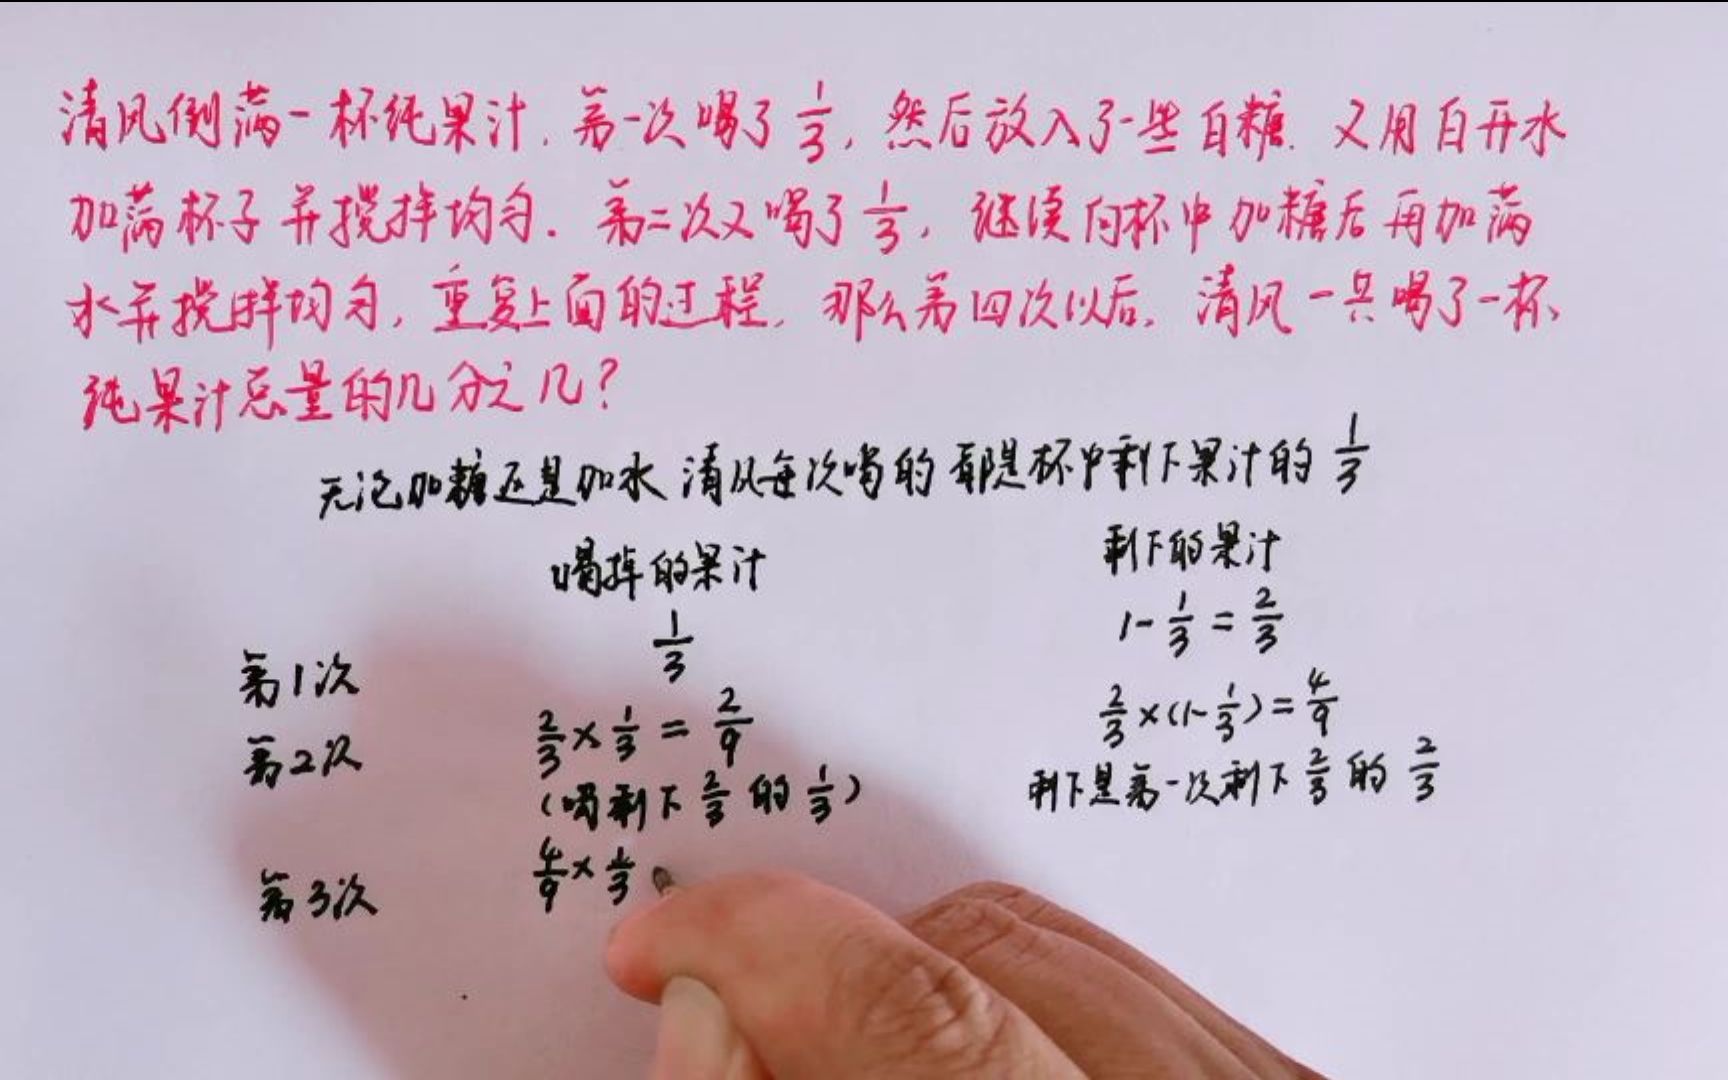 清风倒满一杯纯果汁.第一次喝了1/3,然后放入了一些白糖.又用白开水
加满杯子并搅拌均匀.第二次又喝了1/3,继续向杯中加糖后再加满
水并搅拌均匀,重复上面的过程,那么第四次以后,清风一共喝了一杯
纯果汁总量的几分之几?
无论加糖还是加水 清风每次喝的都是杯中剩下果汁的1/3
喝掉的果汁 剩下的果汁
第1次 1/3 1-1/3=2/3
第2次 2/3×1/3=2/9 2/3×(1-1/3)=4/9
(喝剩下2/3的1/3) 剩下是第一次剩下2/3的2/3
第3次 4/9×1/3